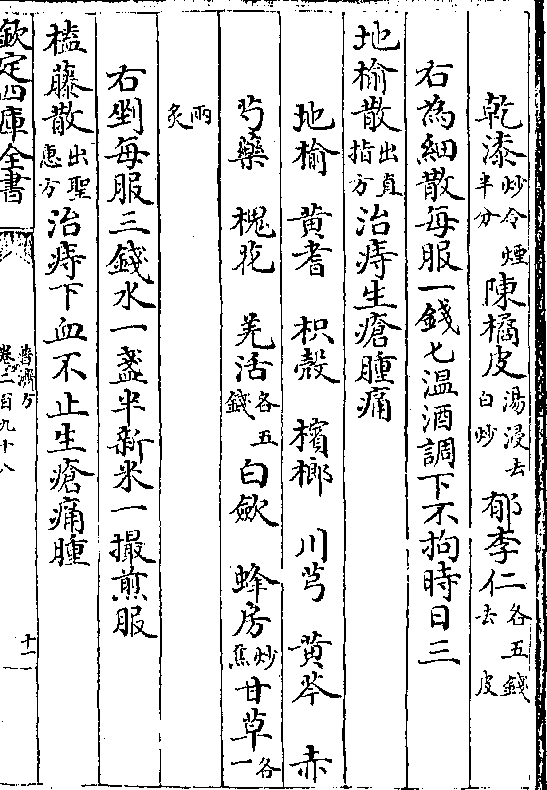 乾漆炒令煙半分陳橘皮湯浸去白炒郁李仁各五錢去皮
右為細散每服一錢匕温酒調下不拘時日三
地榆散出直指方治痔生瘡腫痛
地榆 黄耆 枳殻 檳榔 川芎 黄芩 赤
芍藥 槐花 羌活各五錢白歛 蜂房炒焦甘草各一
兩炙
右剉每服三錢水一盞半新米一撮煎服
榼藤散出聖惠方治痔下血不止生瘡痛腫
欽定四庫全書
普濟方
卷二百九十八
十一